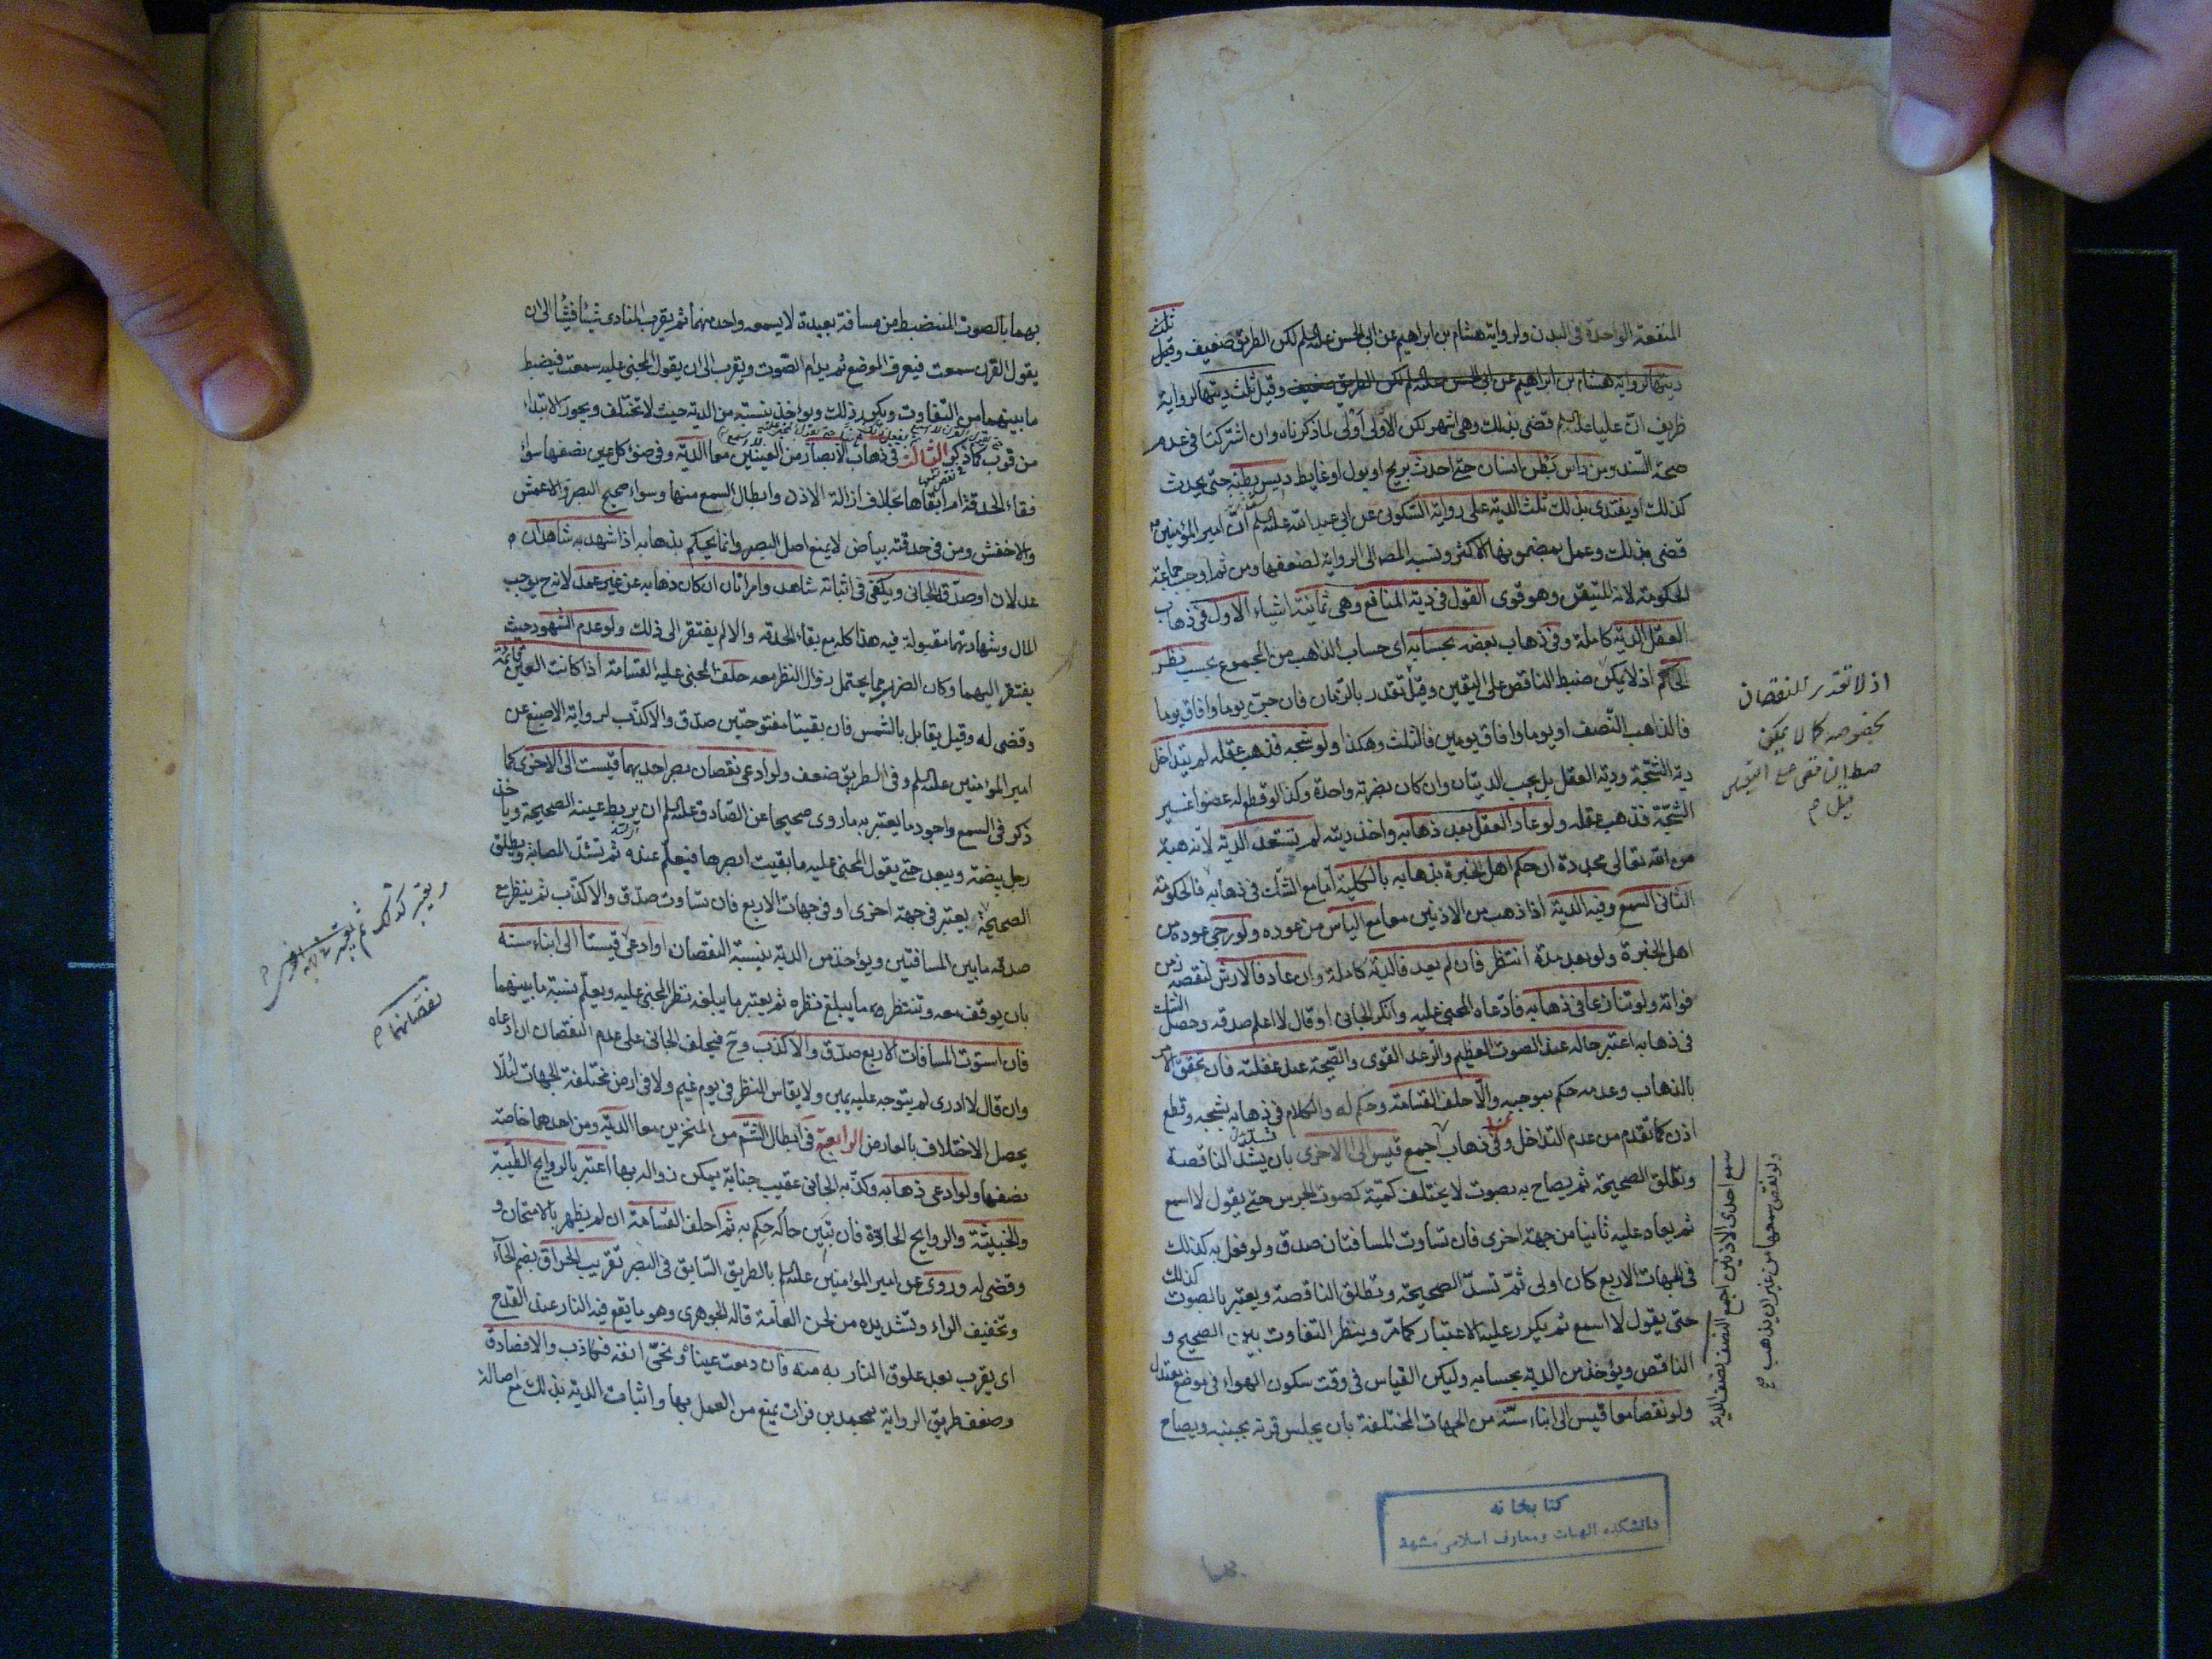 المنفعة الواحدة فى البدن ولرواية هشام بن ابراهيم عن ابى الحسن علیه السلم لكن الطريق ضعيف وقيل ثلث
ديتها لرواية هشام بن ابراهيم عن ابى الحسن علیه السلم لكن الطريق ضعيف وقيل ثلث ديتها لرواية
ظريف ان عليا علیه السلم قضى بذلك وهى اشهر لكن الاولى اولى لما ذكرناه وان اشتركتا فى عدم
صحة السند ومن داس بطن انسان حتى احدث بريح او بول او غايط ديس بطنه حتى يحدث
كذلك او يفتدى بذلك بثلث الدية على رواية السكونى عن ابى عبد الله علیه السلم ان امير المؤمنين
قضى بذلك وعمل بمضمونها الاكثر ونسبه المص الى الرواية لضعفها ومن ثم اوجب جماعة
الحكومة لانه المتيقن وهو قوى القول فى دية المنافع وهى ثمانية اشياء الاول فى ذهاب
العقل الدية كاملة وفى ذهاب بعضه بحسابه اى حساب الذاهب من المجموع بحسب نظر
الحاكم اذ لا يمكن ضبط الناقص على اليقين وقيل تقدر بالزمان فان جن يوما وافاق يوما
فالذاهب النصف او يوما وافاق يومين فالثلث وهكذا ولو شجه فذهب عقله لم يتداخل
دية الشجة ودية العقل بل يجب الديتان وان كان بضربة واحدة وكذا لو قطع له عضوا غير
الشجة فذهب عقله ولو عاد العقل بعد ذهابه واخذ ديته لم تستعد الدية لانه هبة
من الله تعالى مجددة ان حكم اهل الخبرة بذهابه بالكلية اما مع الشك فى ذهابه فالحكومة
الثانى السمع وفيه الدية اذا ذهب من الاذنين معا مع الياس من عوده ولو رجى عوده من
اهل الخبرة ولو بعد مدة انتظر فان لم يعد فالدية كاملة وان عاد فالارش لنقصه زمن
فواته ولو تنازعا فى ذهابه فادعاه المجنى عليه وانكر الجانى او قال لا اعلم صدقه وحصل الشك
فى ذهابه اعتبر حاله عند الصوت العظيم والرعد القوى والصيحة عند غفلته فان تحقق الامر
بالذهاب وعدمه حكم بموجبه والا حلف القسامة وحكم له والكلام فى ذهابه بشجه وقطع
اذن كما تقدم من عدم التداخل وفى ذهاب اجمع قيس الى الاخرى بان يشد الناقصة
وتطلق الصحيحة ثم يصاح به بصوت لا يختلف كمية كصوت الجرس حتى يقول لا اسمع
ثم يعاد عليه ثانيا من جهة اخرى فان تساوت المسافتان صدق ولو فعل به كذلك
فى الجهات الاربع كان اولى ثم تسد الصحيحة وتطلق الناقصة ويعتبر بالصوت كذلك
حتى يقول لا اسمع ثم يكرر عليه الاعتبار كما مر وينظر التفاوت بين الصحيح و
الناقص ويؤخذ من الدية بحسابه وليكن القياس فى وقت سكون الهواء فى موضع معتدل
ولو نقصا معا قيس الى ابناء سنه من الجهات المختلفة بان يجلس قرنه بجنبه ويصاح
اذ لا تقدر للنقصان
بخصوصه كما لا يمكن
ضبط الناقص على اليقين
سمع احدى الاذنين اجمع النصف نصف الدية
ولو نقص سمعها من غير ان يذهب
كتابخانه
دانشكده الهيات ومعارف اسلامى مشهد
بهما بالصوت المنضبط من مسافة بعيدة لا يسمعه واحد منهما ثم يقرب المنادى شيئا فشيئا الى ان
يقول القرن سمعت فيعرف الموضع ثم يدام الصوت ويقرب الى ان يقول المجنى عليه سمعت فيضبط
ما بينهما من التفاوت ويكرر ذلك ويؤخذ بنسبته من الدية حيث لا تختلف ويجوز الابتداء
من قرب كما ذكر الثالث فى ذهاب الابصار من العينين معا الدية وفى ضوء كل عين نصفها سواء
فقاء الحدقة ام ابقاها بخلاف ازالة الاذن وابطال السمع منها وسواء صحيح البصر والاعمش
والاخفش ومن فى حدقته بياض لا يمنع اصل البصر وانما يحكم بذهابه اذا شهد به شاهدان
عدلان او صدقه الجانى ويكفى فى اثباته شاهد وامراتان ان كان ذهابه عن غير عمد لانه ح يوجب
المال وشهادتهما مقبولة فيه هذا كله مع بقاء الحدقة والا لم يفتقر الى ذلك ولو عدم الشهود حيث
يفتقر اليهما وكان الضرب مما يحتمل زوال النظر معه حلف المجنى عليه القسامة اذا كانت العين قائمة
وقضى له وقيل يقابل بالشمس فان بقيتا مفتوحتين صدق والا كذب لرواية الاصبغ عن
امير المؤمنين علیه السلم وفى الطريق ضعف ولو ادعى نقصان بصر احديهما قيست الى الاخرى كما
ذكر فى السمع واجود ما يعتبر به ما روى صحيحا عن الصادق علیه السلم ان يربط عينه الصحيحة ويأخذ
رجل بيضة ويبعد حتى يقول المجنى عليه ما بقيت ابصرها فيعلم عنده ثم تشد المصابة ويطلق
الصحيحة يعتبر فى جهة اخرى او فى جهات الاربع فان تساوت صدق والا كذب ثم ينظر مع
صدقه ما بين المسافتين ويؤخذ من الدية بنسبة النقصان او ادعى قيستا الى ابناء سنه
بان يوقف معه وتنتظره ما يبلغ نظره ثم يعتبر ما يبلغه نظر المجنى عليه ويعلم نسبة ما بينهما
فان استوت المسافات الاربع صدق والا كذب وح فيحلف الجانى على عدم النقصان ان ادعاه
وان قال لا ادرى لم يتوجه عليه يمين ولا يقاس النظر فى يوم غيم ولا فى ارض مختلفة الجهات لئلا
يحصل الاختلاف بالعارض الرابع فى ابطال الشم من المنخرين معا الدية ومن احدهما خاصة
نصفها ولو ادعى ذهابه وكذبه الجانى عقيب جناية يمكن زواله بها اعتبر بالروايح الطيبة
والخبيثة والروايح الحادة فان تبين حاله حكم به ثم احلف القسامة ان لم يظهر بالامتحان و
وقضى له وروى عن امير المؤمنين علیه السلم بالطريق السابق فى البصر تقريب الحراق بضم الحاء
وتخفيف الراء وتشديده من لحن العامة قاله الجوهرى وهو ما يقع فيه النار عند القدح
اى يقرب بعد علوق النار به منه فان دمعت عيناه ونحى انفه فكاذب والا فصادق
وضعف طريق الرواية بمحمد بن فرات يمنع من العمل بها واثبات الدية بذلك مع اصالة
نقصانهما